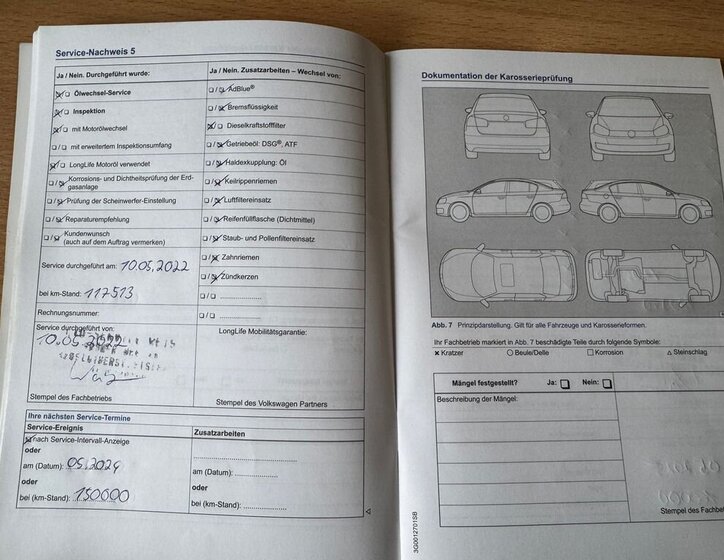 Service-Nachweis 5
Ja / Nein. Durchgeführt wurde:
Ölwechsel-Service
Inspektion
mit Motorölwechsel
mit erweitertem Inspektionsumfang
LongLife Motoröl verwendet
Korrosions- und Dichtheitsprüfung der Erd-
gasanlage
Prüfung der Scheinwerfer-Einstellung
Reparaturempfehlung
Kundenwunsch
(auch auf dem Auftrag vermerken)
Service durchgeführt am: 10.05.2022
bei km-Stand: 117513
Rechnungsnummer:
Service durchgeführt von:
10.05.2022
Stempel des Fachbetriebs
Ja / Nein. Zusatzarbeiten – Wechsel von:
AdBlue®
Bremsflüssigkeit
Dieselkraftstofffilter
Getriebeöl: DSG®, ATF
Haldexkupplung: Öl
Keilrippenriemen
Luftfiltereinsatz
Reifenfüllflasche (Dichtmittel)
Staub- und Pollenfiltereinsatz
Zahnriemen
Zündkerzen
LongLife Mobilitätsgarantie:
Stempel des Volkswagen Partners
Ihre nächsten Service-Termine
Service-Ereignis
nach Service-Intervall-Anzeige
oder
am (Datum): 05.2024
oder
bei (km-Stand): 150000
Zusatzarbeiten
am (Datum):
oder
bei (km-Stand):
Dokumentation der Karosserieprüfung
Abb. 7 Prinzipdarstellung. Gilt für alle Fahrzeuge und Karosserieformen.
Ihr Fachbetrieb markiert in Abb. 7 beschädigte Teile durch folgende Symbole:
Kratzer Beule/Delle Korrosion Steinschlag
Mängel festgestellt? Ja: Nein:
Beschreibung der Mängel:
Stempel des Fachbet
3G0012701SB